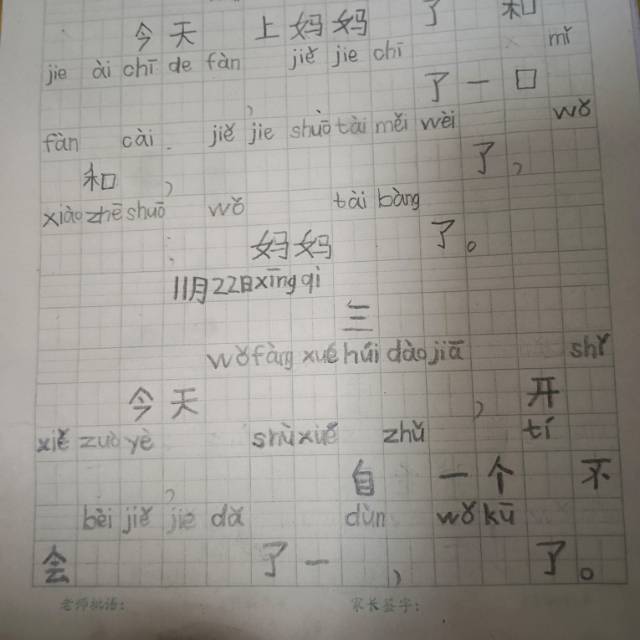 今天 上妈妈 了 和
jie ài chī de fàn jiě jie chī mǐ
, 了一口
fàn cài . jiě jie shuō tài měi wèi wǒ
和 , 了,
xiào zhē shuō wǒ tài bàng
: 妈妈 了。
11月22日xīng qì
三
wǒ fàng xué húi dào jiā shǐ
今天 , 开
xiě zuò yè shù xué zhǔ tí
, 自 一个 不
bèi jiě jie dǎ dùn wǒ kū
会 了一 , 了。
老师批语： 家长签字：